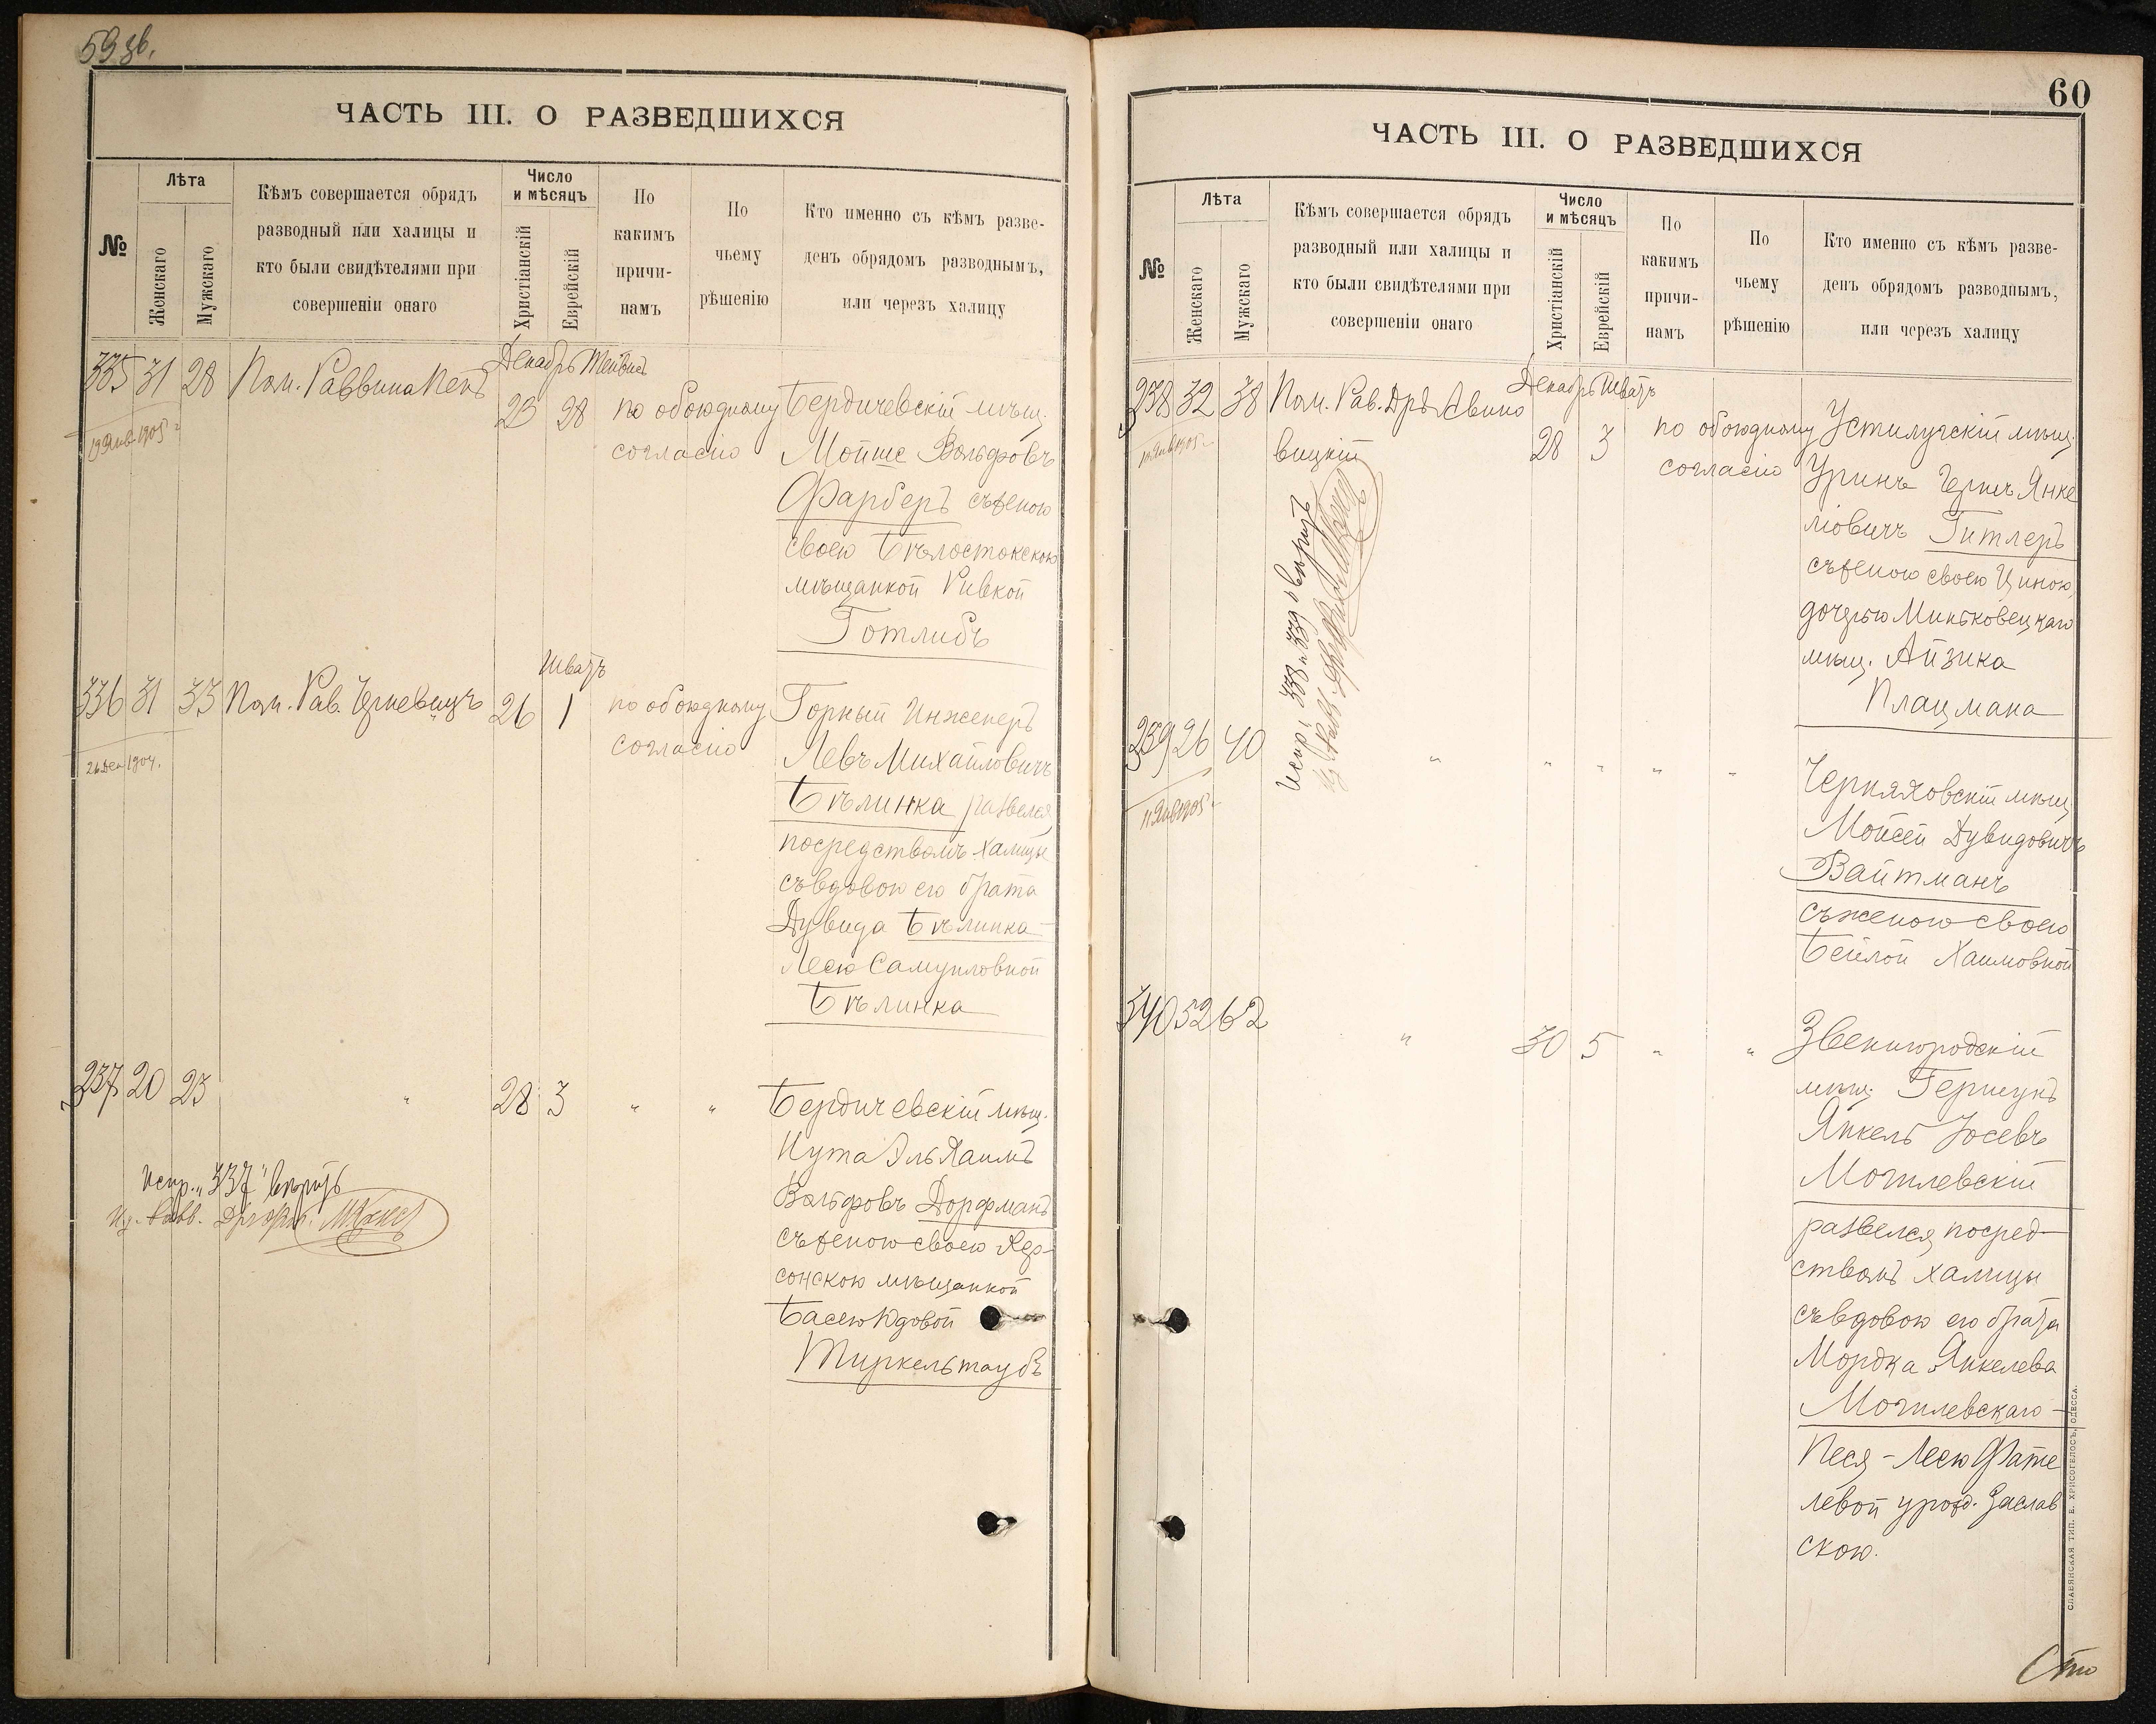 59 зв.
ЧАСТЬ III. О РАЗВЕДШИХСЯ
№
Лѣта
Женскаго
Мужскаго
Кѣмъ совершается обрядъ
разводный или халицы и
кто были свидѣтелями при
совершеніи онаго
Число
и мѣсяцъ
Христіанскій
Еврейскій
По
какимъ
причи-
намъ
По
чьему
рѣшенію
Кто именно съ кѣмъ разве-
денъ обрядомъ разводнымъ,
или черезъ халицу
Декабрь Тейвисъ
335 31 28 Пом. Раввина Кепъ 23 28 по обоюдному
согласію
19 Янв 1905 г
Бердичевскій мѣщ.
Мойше Вольфовъ
Фарберъ съ женою
своею Бѣлостокскою
мѣщанкой Ривкой
Готлибъ
Шватъ
336 31 33 Пом. Рав. 26 1 по обоюдному
согласію
26 Дек 1904.
Горный Инженеръ
Левъ Михайловичъ
Бѣлинка развелся
посредствомъ халицы
съ вдовою его брата
Дувида Бѣлинка
Лесю Самуиловной
Бѣлинка
337 20 23 " 28 3 " "
Бердичевскій мѣщ.
Нута Эль Хаимъ
Вольфовъ Дорфманъ
съ женою своею Хер-
сонскою мѣщанкой
Басею Юдовой
Тиркельтаубъ
Испр. "337" вѣрить
60
ЧАСТЬ III. О РАЗВЕДШИХСЯ
№
Лѣта
Женскаго
Мужскаго
Кѣмъ совершается обрядъ
разводный или халицы и
кто были свидѣтелями при
совершеніи онаго
Число
и мѣсяцъ
Христіанскій
Еврейскій
По
какимъ
причи-
намъ
По
чьему
рѣшенію
Кто именно съ кѣмъ разве-
денъ обрядомъ разводнымъ,
или черезъ халицу
Декабрь Шватъ
338 32 38 Пом. Рав. Дръ Авино
вицкій 28 3 по обоюдному
согласію
Устилугскій мѣщ.
Уринъ Гершъ Янке
ліовичъ Гитлеръ
съ женою своею Циною,
дочерью Миньковецкаго
мѣщ. Айзика
Плацмана
Испр. 338 и 339 вѣрить
339 26 40 " " " " "
11 Янв 1905 г
Черняховскій мѣщ
Мойсей Дувидовичъ
Вайтманъ
съ женою своею
Бейлой Хаимовной
340 52 62 " 30 5 " "
Звенигородскій
мѣщ. Гершунъ
Янкель Іосевъ
Могилевскій
развелся посред-
ствомъ халицы
съ вдовою его брата
Мордка Янкелева
Могилевскаго -
Песя - Лею Фате
левой урожд. Заслав
скою.
СЛАВЯНСКАЯ ТИП. Е. ХРИСОГЕЛОСЪ, ОДЕССА.